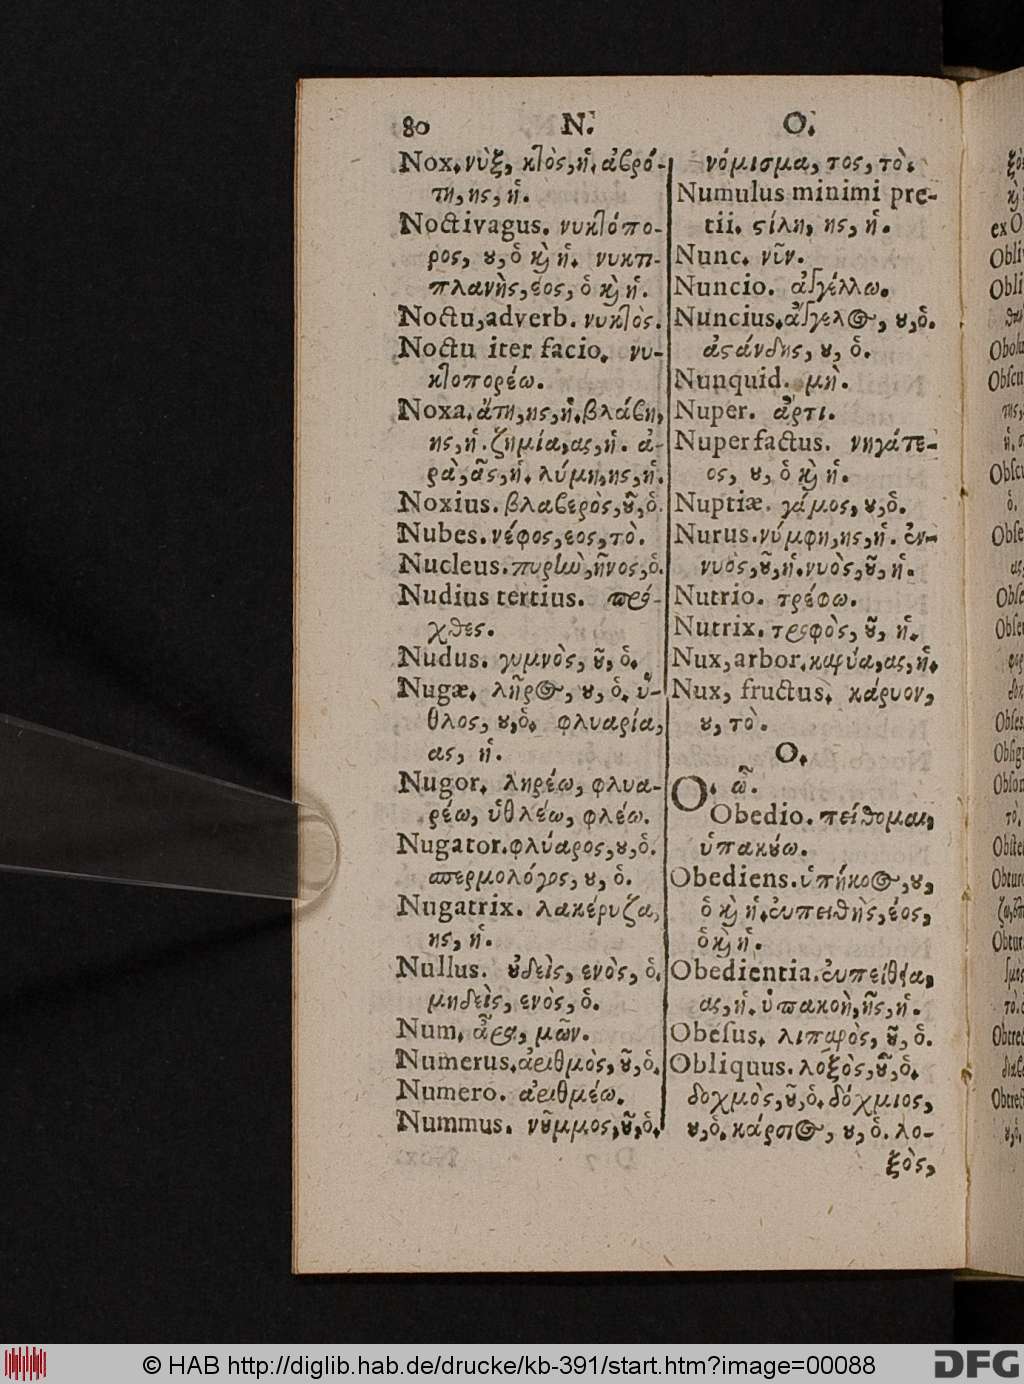 80 N. O.
Nox. νὺξ, κτὸς, ἡ. ἀβρό-
τη, ης, ἡ.
Noctivagus. νυκτόπο-
ρος, ου, ὁ καὶ ἡ. νυκτι-
πλανὴς, έος, ὁ καὶ ἡ.
Noctu, adverb. νυκτὸς.
Noctu iter facio. νυ-
κτοπορέω.
Noxa. ἄτη, ης, ἡ. βλάβη,
ης, ἡ. ζημία, ας, ἡ. ἀ-
ρὰ, ᾶς, ἡ. λύμη, ης, ἡ.
Noxius. βλαβερὸς, οῦ, ὁ.
Nubes. νέφος, εος, τὸ.
Nucleus. πυρὴν, ῆνος, ὁ.
Nudius tertius. πρό-
χθες.
Nudus. γυμνὸς, οῦ, ὁ.
Nugæ. λῆρος, ου, ὁ. ὕ-
θλος, ου, ὁ. φλυαρία,
ας, ἡ.
Nugor. ληρέω, φλυα-
ρέω, ὑθλέω, φλέω.
Nugator. φλύαρος, ου, ὁ.
σπερμολόγος, ου, ὁ.
Nugatrix. λακέρυζα,
ης, ἡ.
Nullus. οὐδεὶς, ενὸς, ὁ.
μηδεὶς, ενὸς, ὁ.
Num. ἆρα, μῶν.
Numerus. ἀριθμὸς, οῦ, ὁ.
Numero. ἀριθμέω.
Nummus. νοῦμμος, οῦ, ὁ.
νόμισμα, τος, τὸ.
Numulus minimi pre-
tii. στίλη, ης, ἡ.
Nunc. νῦν.
Nuncio. ἀγγέλλω.
Nuncius. ἄγγελος, ου, ὁ.
ἀστάνδης, ου, ὁ.
Nunquid. μὴ.
Nuper. ἄρτι.
Nuper factus. νηγάτε-
ος, ου, ὁ καὶ ἡ.
Nuptiæ. γάμος, ου, ὁ.
Nurus. νύμφη, ης, ἡ. ἐν-
νυὸς, οῦ, ἡ. νυὸς, οῦ, ἡ.
Nutrio. τρέφω.
Nutrix. τροφὸς, οῦ, ἡ.
Nux, arbor. καρύα, ας, ἡ.
Nux, fructus. κάρυον,
ου, τὸ.
O.
O. ὦ.
Obedio. πείθομαι,
ὑπακούω.
Obediens. ὑπήκοος, ου,
ὁ καὶ ἡ. εὐπειθὴς, έος,
ὁ καὶ ἡ.
Obedientia. εὐπείθεια,
ας, ἡ. ὑπακοὴ, ῆς, ἡ.
Obesus. λιπαρὸς, οῦ, ὁ.
Obliquus. λοξὸς, οῦ, ὁ.
δοχμὸς, οῦ, ὁ. δόχμιος,
ου, ὁ. κάρσιος, ου, ὁ. λο-
ξὸς,
© HAB http://diglib.hab.de/drucke/kb-391/start.htm?image=00088
DFG